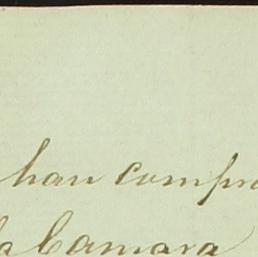 han compr
la Camara